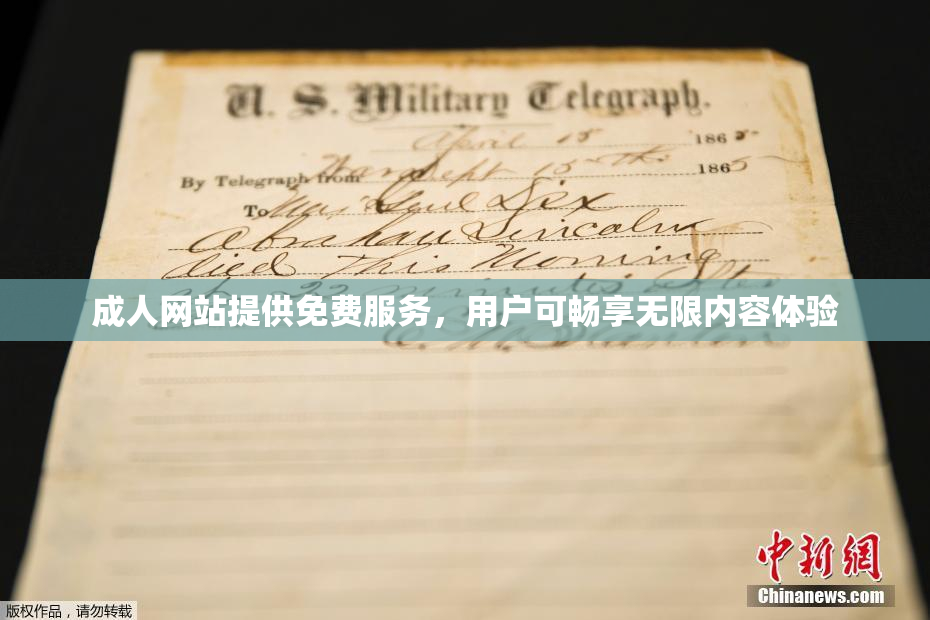 U. S. Military Telegraph.
April 15 1865.
By Telegraph from War Dept 15th 1865
To Maj Genl Dix
Abraham Lincoln
died This Morning
22 minutes after
成人网站提供免费服务，用户可畅享无限内容体验
E. M. Stanton
中新网
Chinanews.com
版权作品，请勿转载